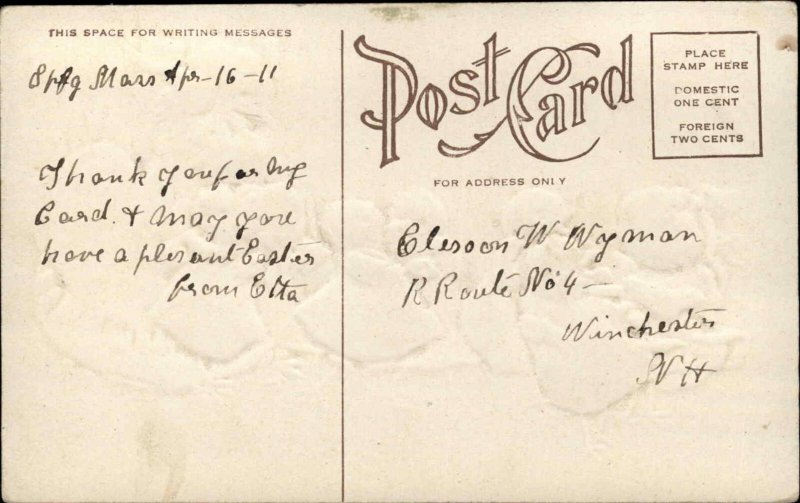 THIS SPACE FOR WRITING MESSAGES
Spfg Mass Apr-16-11
Thank you for my
Card. & may you
have a plesant Easter
from Etta
Post Card
FOR ADDRESS ONLY
PLACE
STAMP HERE
DOMESTIC
ONE CENT
FOREIGN
TWO CENTS
Clesson W Wyman
R Route No 4-
Winchester
N H